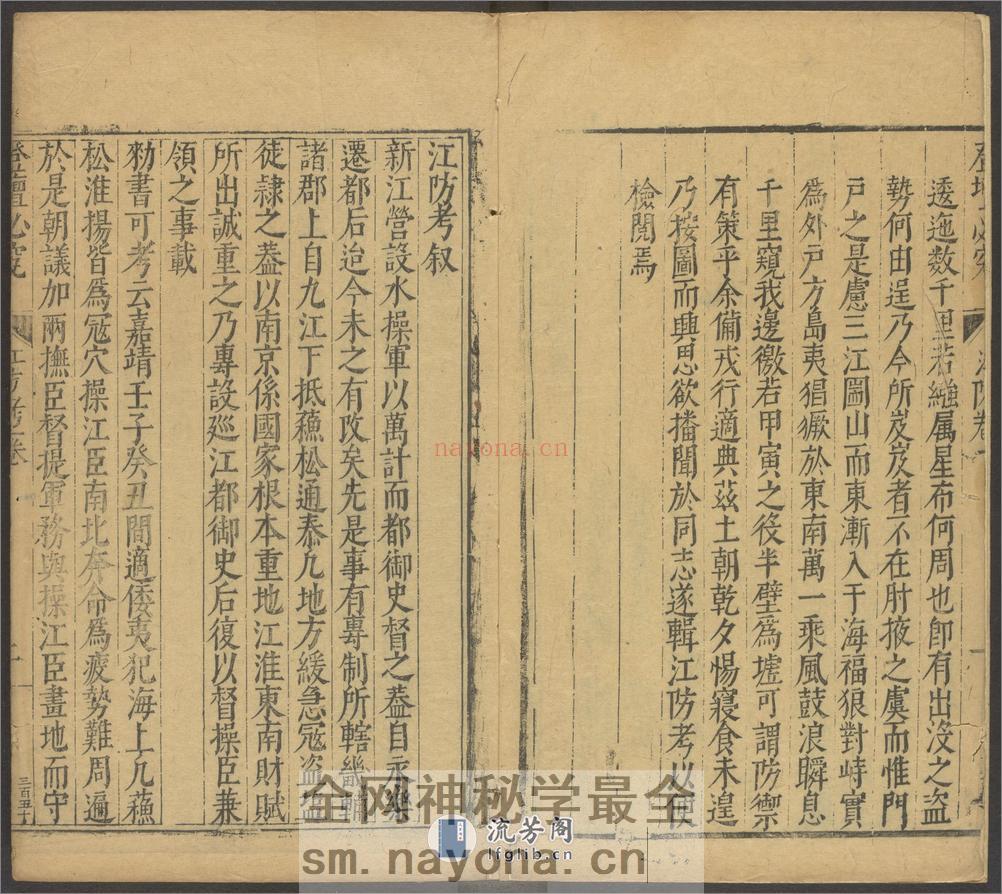 逶迤数千里若繩属星布何周也卽有出没之盗
勢何由逞乃今所岌岌者不在肘掖之虞而惟門
戸之是慮三江圌山而東漸入于海福狼對峙實
爲外戸方島夷猖獗於東南萬一乘風鼓浪瞬息
千里窺我邊徼若甲寅之役半壁爲墟可謂防禦
有策乎余備戎行適典茲土朝乾夕惕寢食未遑
乃按圖而興思欲播聞於同志遂輯江防考以便
檢閱焉
江防考叙
新江營設水操軍以萬計而都御史督之葢自永樂
遷都后迨今未之有改矣先是事有專制所轄
諸郡上自九江下抵蘓松通泰凢地方緩急寇盗
徒隷之葢以南京係國家根本重地江淮東南財賦
所出誠重之乃專設廵江都御史后復以督操臣兼
領之事載
勑書可考云嘉靖壬子癸丑間適倭夷犯海上凢蘓
松淮揚皆爲寇穴操江臣南北奔命爲疲勢難周遍
於是朝議加兩撫臣督提軍務與操江臣畫地而守
登壇必究
江防考
三百五十
nayona.cn
全网神秘学最全
流芳阁
lfglib.cn
sm.nayona.cn